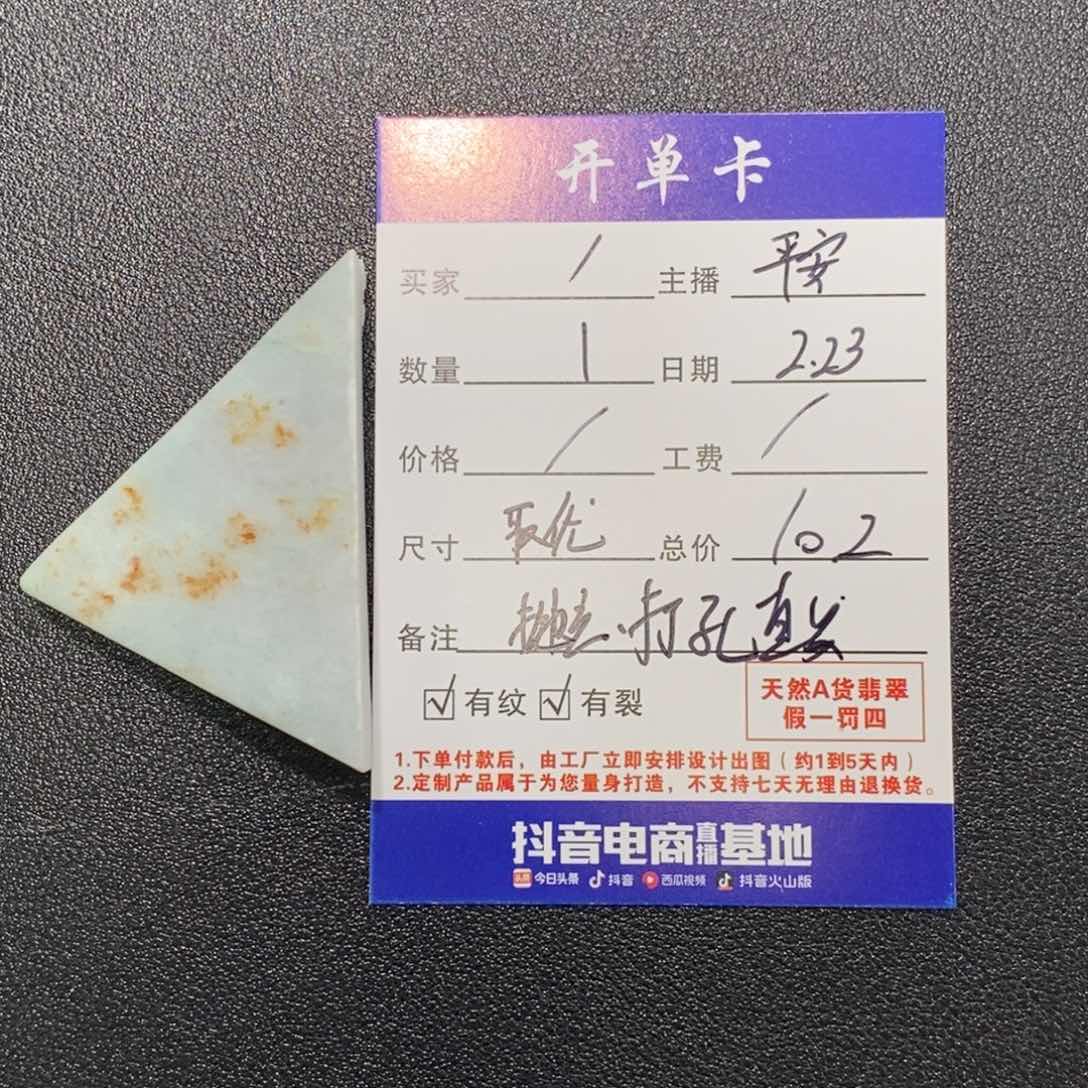 开单卡
买家 / 主播 平安
数量 1 日期 2.23
价格 / 工费 /
尺寸 取优 总价 102
备注 抛光.打孔直发
☑有纹 ☑有裂
天然A货翡翠
假一罚四
1.下单付款后，由工厂立即安排设计出图（约1到5天内）
2.定制产品属于为您量身打造，不支持七天无理由退换货。
抖音电商直播基地
头条 今日头条 抖音 西瓜视频 抖音火山版